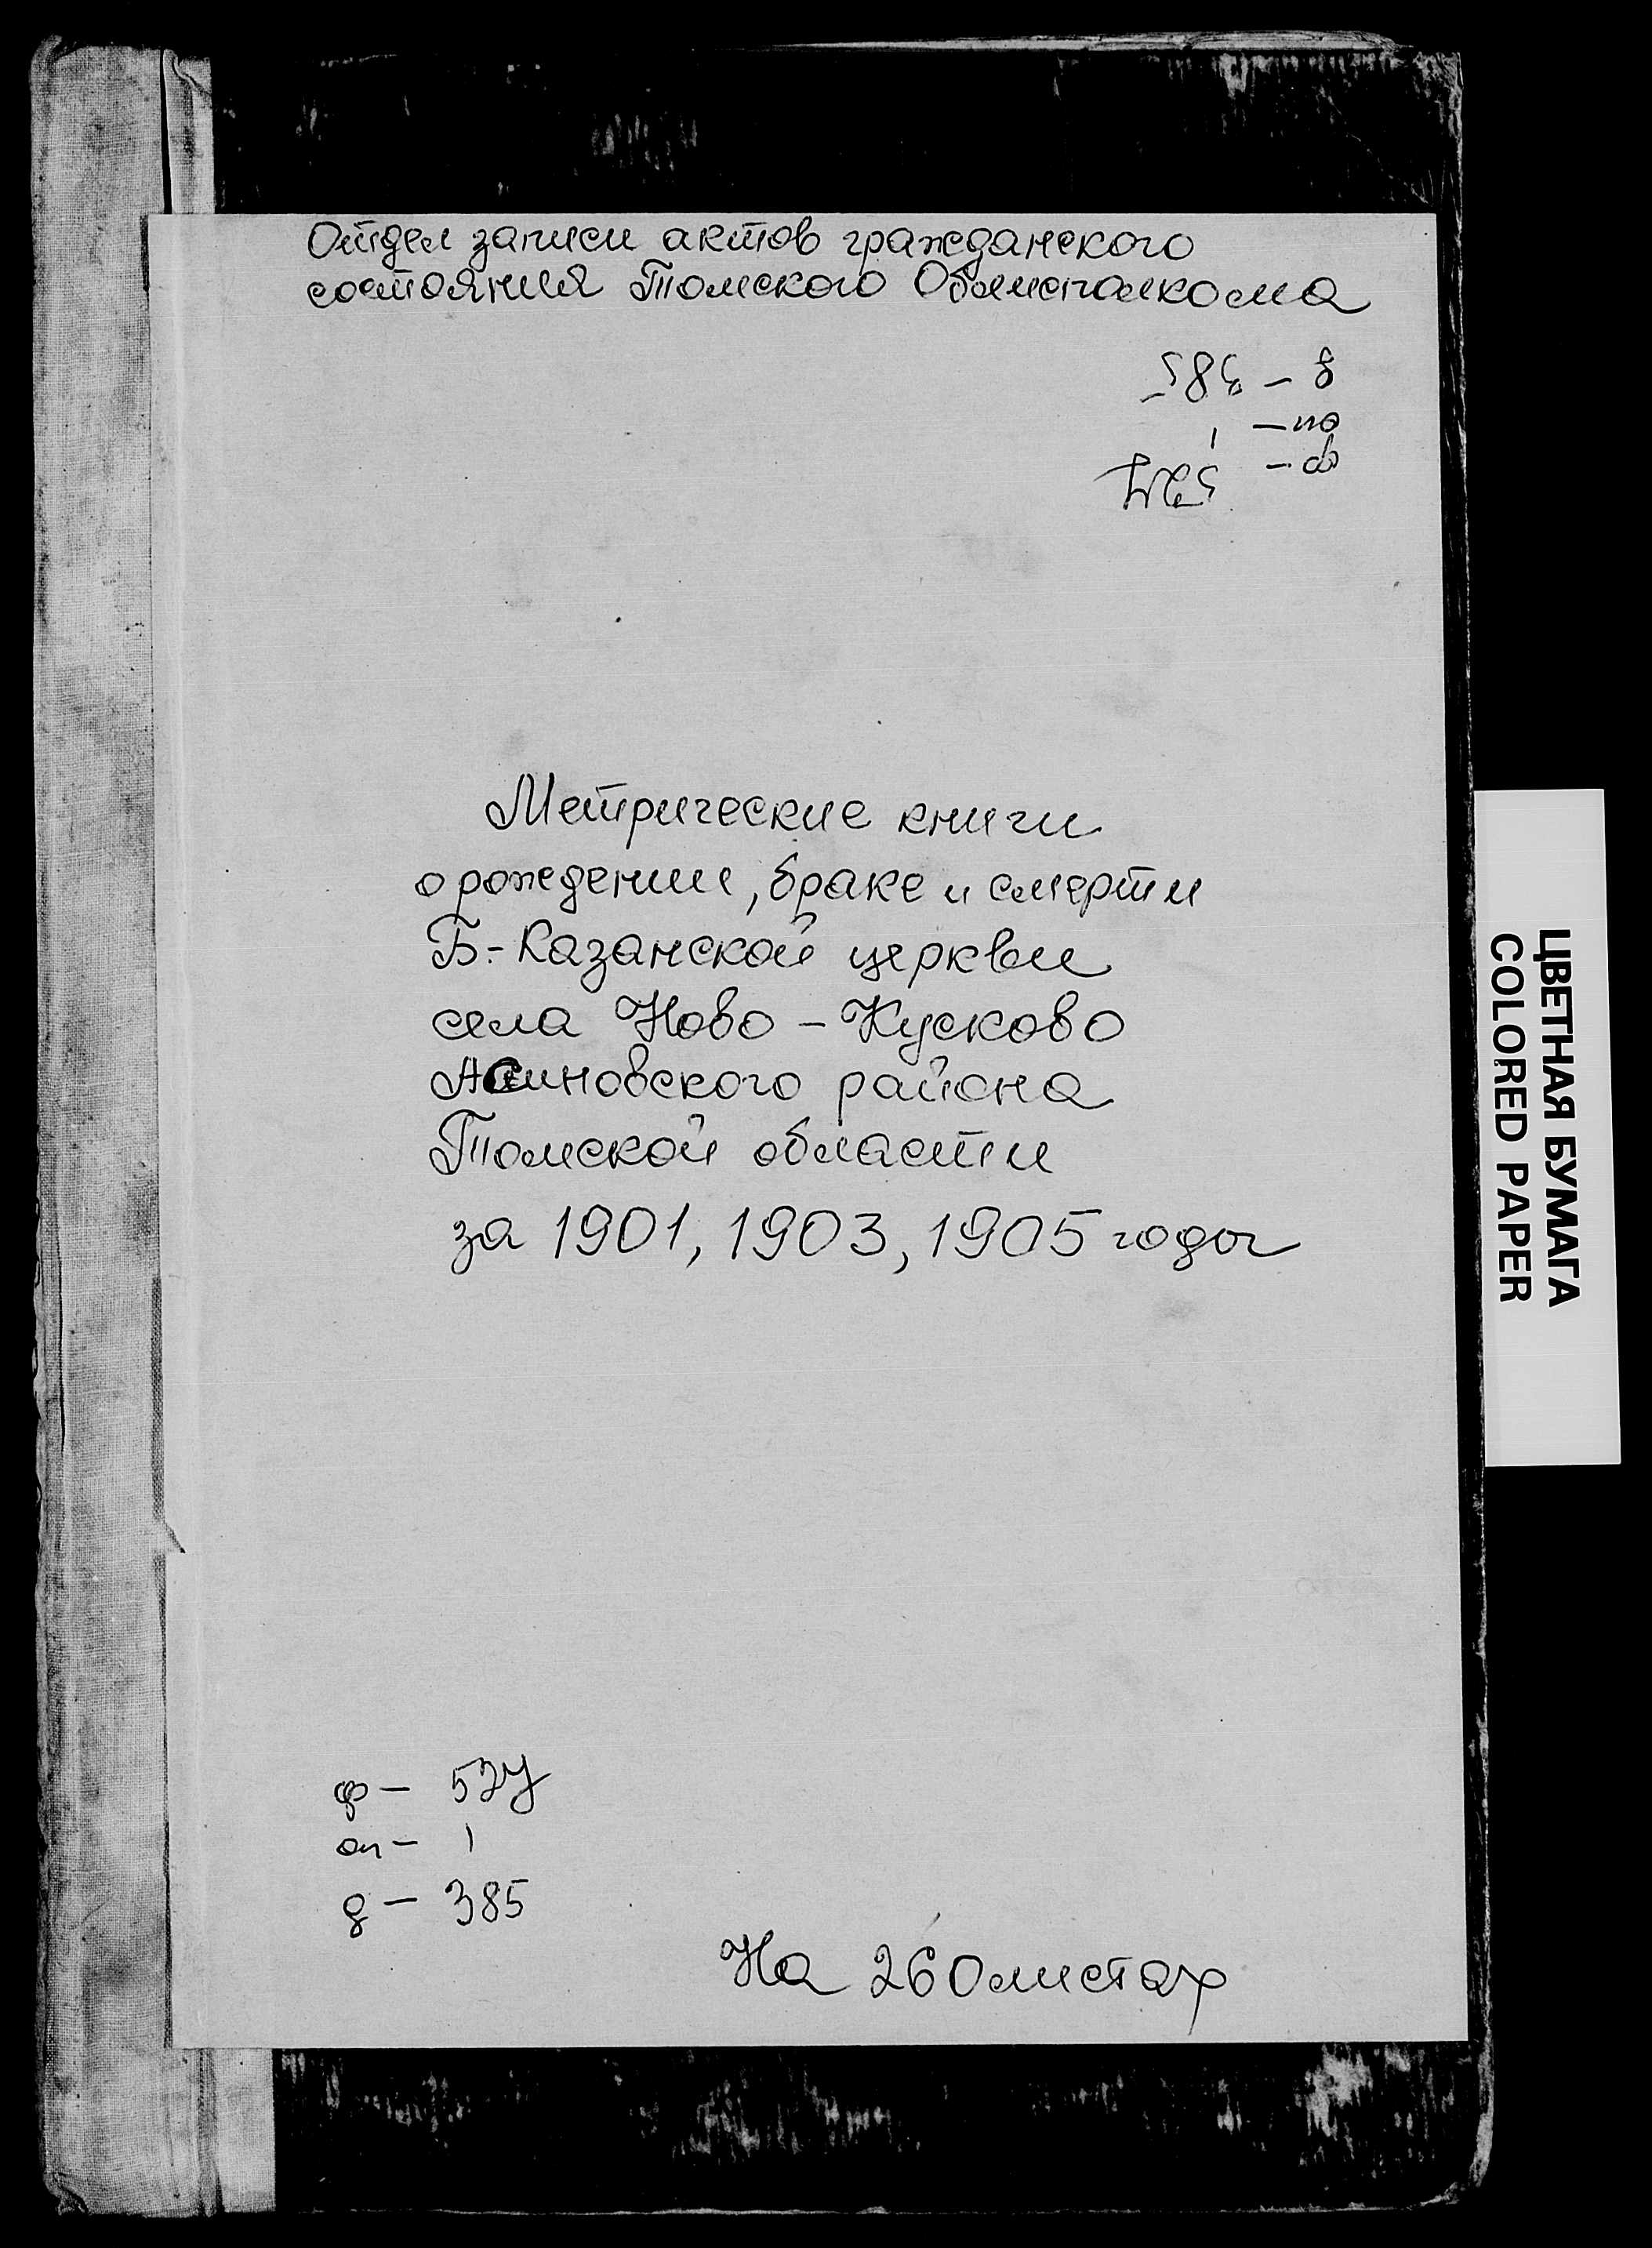 Отдел записи актов гражданского
состояния Томского Облисполкома
д - 385
оп - 1
ф - 527
Метрические книги
о рождении, браке и смерти
Б.-Казанской церкви
села Ново - Кусково
Асиновского района
Томской области
за 1901, 1903, 1905 годы
ф - 527
оп - 1
д - 385
На 260 листах
ЦВЕТНАЯ БУМАГА
COLORED PAPER